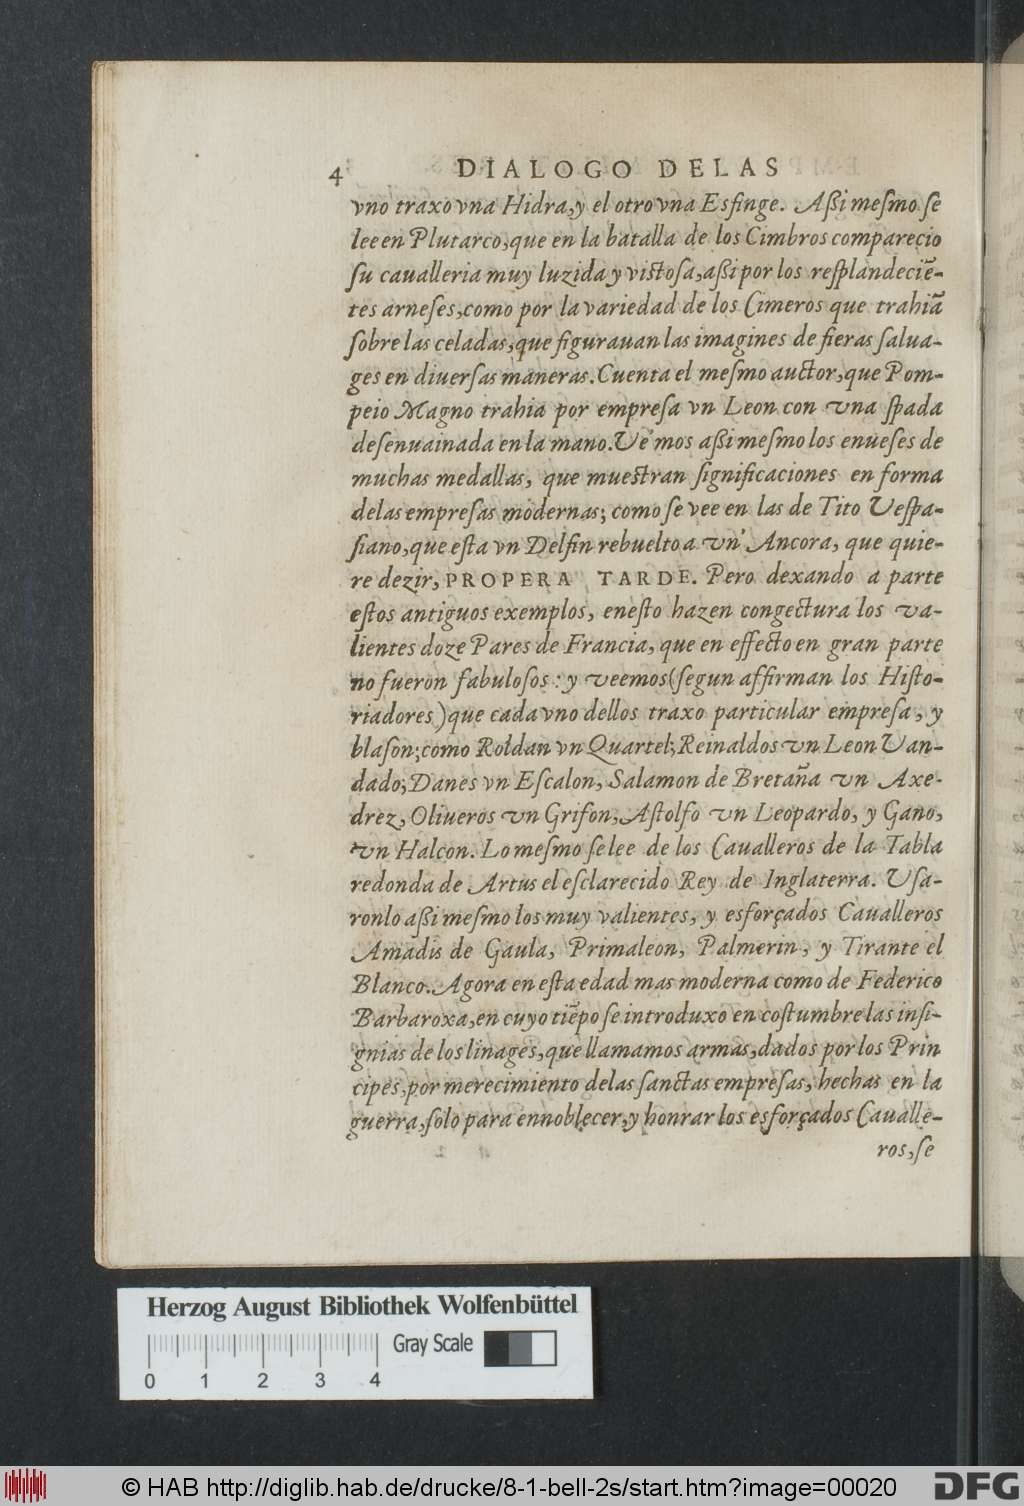 4 DIALOGO DELAS
vno traxo vna Hidra, y el otro vna Esfinge. Aßi meſmo ſe
lee en Plutarco, que en la batalla de los Cimbros comparecio
ſu caualleria muy luzida y viſtoſa, aßi por los reſplandeciẽ-
tes arneſes, como por la variedad de los Cimeros que trahiã
ſobre las celadas, que figurauan las imagines de fieras ſalua-
ges en diuerſas maneras. Cuenta el meſmo auctor, que Pom-
peio Magno trahia por empreſa vn Leon con vna ſpada
deſenuainada en la mano. Vemos aßi meſmo los enueſes de
muchas medallas, que mueſtran ſignificaciones en forma
delas empreſas modernas; como ſe vee en las de Tito Veſpa-
ſiano, que eſta vn Delfin rebuelto a vn' Ancora, que quie-
re dezir, PROPERA TARDE. Pero dexando a parte
eſtos antiguos exemplos, eneſto hazen congectura los va-
lientes doze Pares de Francia, que en effecto en gran parte
no fueron fabuloſos: y veemos (ſegun affirman los Hiſto-
riadores) que cada vno dellos traxo particular empreſa, y
blaſon; como Roldan vn Quartel; Reinaldos vn Leon Van-
dado; Danes vn Eſcalon, Salamon de Bretaña vn Axe-
drez, Oliueros vn Grifon, Aſtolfo vn Leopardo, y Gano,
vn Halcon. Lo meſmo ſe lee de los Caualleros de la Tabla
redonda de Artus el eſclarecido Rey de Inglaterra. Vſa-
ronlo aßi meſmo los muy valientes, y esforçados Caualleros
Amadis de Gaula, Primaleon, Palmerin, y Tirante el
Blanco. Agora en eſta edad mas moderna como de Federico
Barbaroxa, en cuyo tiẽpo ſe introduxo en coſtumbre las inſi-
gnias de los linages, que llamamos armas, dados por los Prin
cipes, por merecimiento delas ſanctas empreſas, hechas en la
guerra, ſolo para ennoblecer, y honrar los esforçados Caualle-
ros, ſe
Herzog August Bibliothek Wolfenbüttel
Gray Scale
0 1 2 3 4
© HAB http://diglib.hab.de/drucke/8-1-bell-2s/start.htm?image=00020
DFG